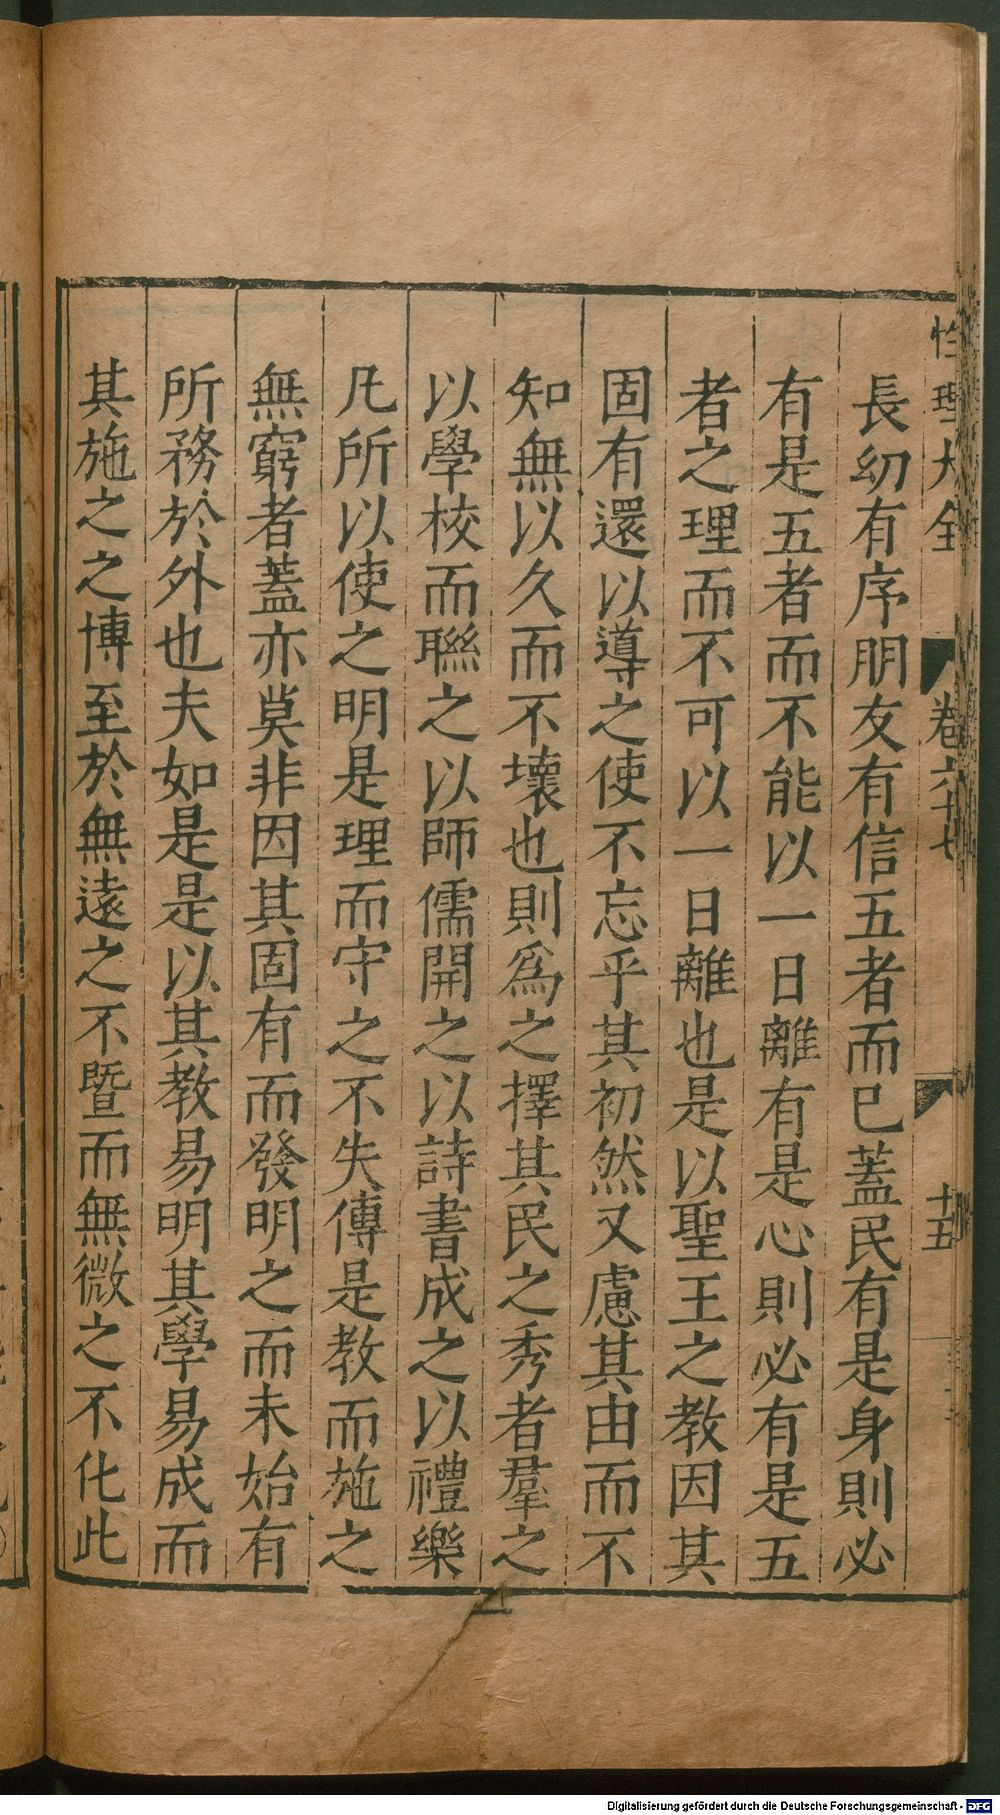 性理大全 卷六十七 十五
長幼有序朋友有信五者而已蓋民有是身則必
有是五者而不能以一日離有是心則必有是五
者之理而不可以一日離也是以聖王之教因其
固有還以導之使不忘乎其初然又慮其由而不
知無以久而不壞也則爲之擇其民之秀者羣之
以學校而聯之以師儒開之以詩書成之以禮樂
凡所以使之明是理而守之不失傳是教而施之
無窮者蓋亦莫非因其固有而發明之而未始有
所務於外也夫如是是以其教易明其學易成而
其施之之博至於無遠之不暨而無微之不化此
Digitalisierung gefördert durch die Deutsche Forschungsgemeinschaft - DFG